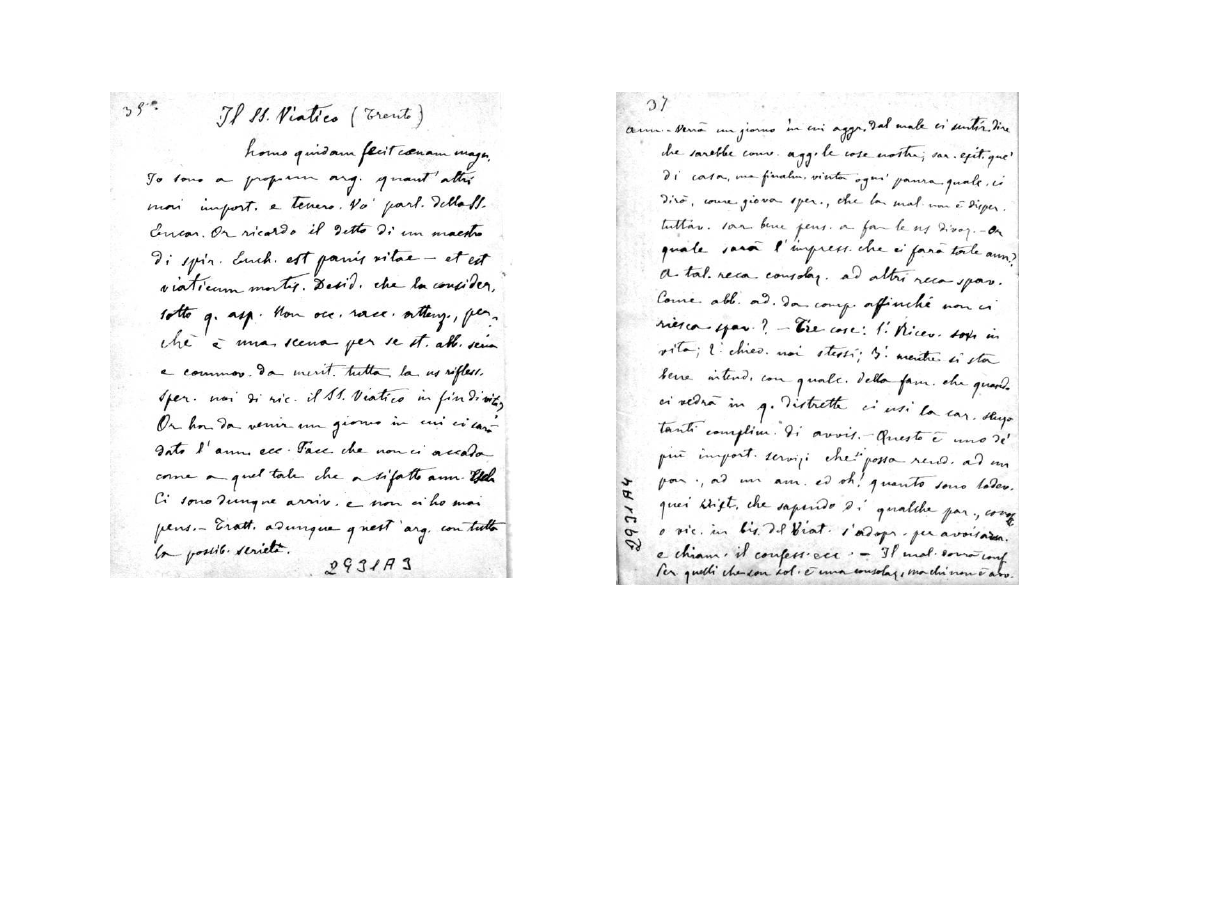 35
Il SS. Viatico (Trento)
homo quidam fecit cœnam magn.
Io sono a proporvi arg. quant' altri
mai import. e tenero. Vo' parl. della SS.
Eucar. Or ricordo il detto di un maestro
di spir. Euch. est panis vitae — et est
viaticum mortis. Desid. che la consider.
sotto q. asp. Non occ. racc. attenz., per-
chè è una scena per se st. abb. seria
e commov. da merit. tutta la ns rifless.
sper. noi di ric. il SS. Viatico in fin di vita,
Or ha da venire un giorno in cui ci sarà
dato l' ann. ecc. Facc. che non ci accada
come a quel tale che a sifatto ann. escl.
Ci sono dunque arriv. e non ci ho mai
pens. — Tratt. adunque quest' arg. con tutta
la possib. serietà.
2931A3
37
ann. — Verrà un giorno in cui aggr. dal male ci sentir. dire
che sarebbe conv. agg. le cose nostre; sar. esit. que'
di casa, ma finalm. vinta ogni paura qualc. ci
dirà, come giova sper., che la mal. non è disper.
tuttav. sar. bene pens. a far le ns divoz. — Or
quale sarà l' impress. che ci farà tale ann.?
A tal. reca consolaz. ad altri reca spav.
Come abb. ad. da comp. affinchè non ci
riesca spav.? — Tre cose: 1: Ricev. in
vita; 2: chied. noi stessi; 3: mentre si sta
bene intend. con qualc. della fam. che quando
ci vedrà in q. distrette ci usi la car. senza
tanti complim. di avvis. — Questo è uno de'
più import. servizi che si possa rend. ad un
par., ad un am. ed oh! quanto sono lodev.
quei crist. che sapendo di qualche par.,
o vic. in bis. del Viat. s' adopr. per avvisar.
e chiam. il confess. ecc. — Il mal. dovrà conf.
Per quelli che son sol. è una consolaz., ma chi non è avv.
2931A4